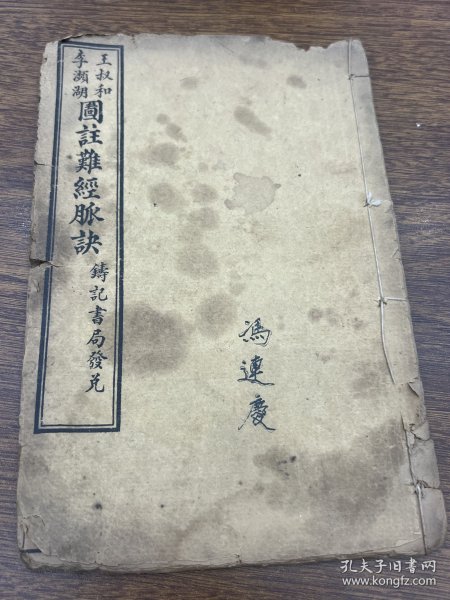 王叔和
李瀕湖
圖註難經脈訣
鑄記書局發兌
馮連慶
孔夫子旧书网
www.kongfz.com